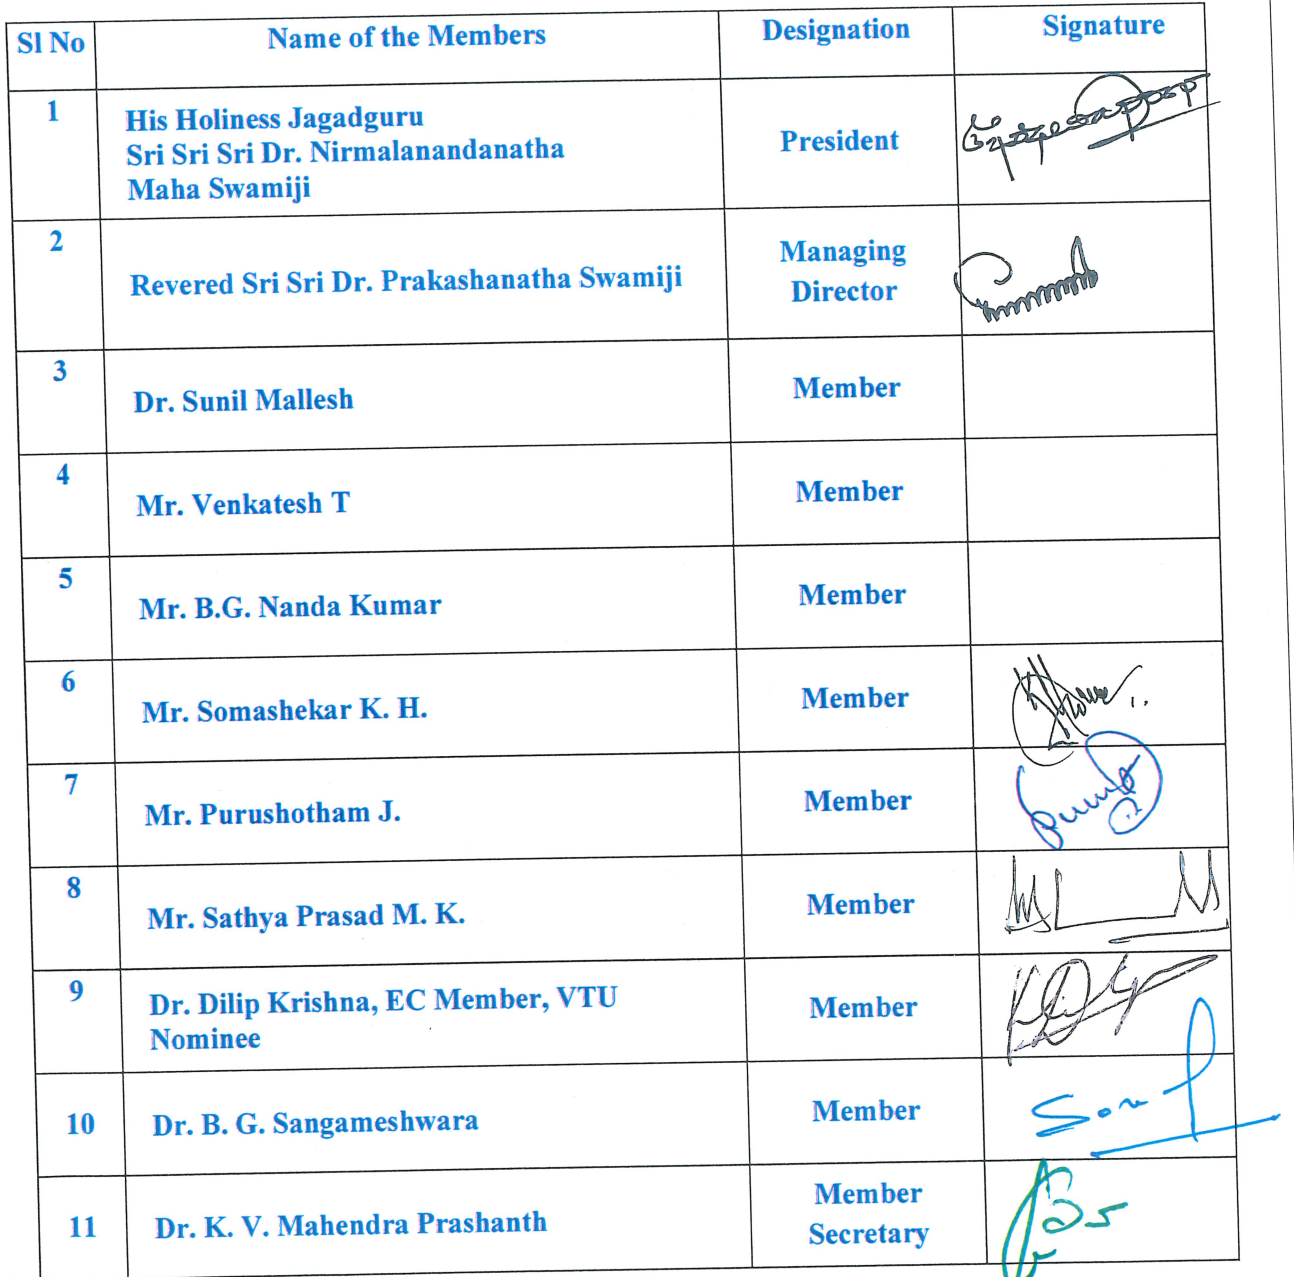 Sl No Name of the Members Designation Signature
1 His Holiness Jagadguru
Sri Sri Sri Dr. Nirmalanandanatha President
Maha Swamiji
2 Revered Sri Sri Dr. Prakashanatha Swamiji Managing
Director
3 Dr. Sunil Mallesh Member
4 Mr. Venkatesh T Member
5 Mr. B.G. Nanda Kumar Member
6 Mr. Somashekar K. H. Member
7 Mr. Purushotham J. Member
8 Mr. Sathya Prasad M. K. Member
9 Dr. Dilip Krishna, EC Member, VTU Member
Nominee
10 Dr. B. G. Sangameshwara Member
11 Dr. K. V. Mahendra Prashanth Member
Secretary